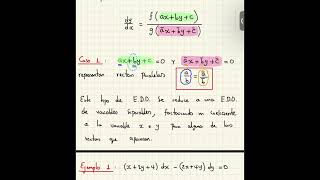 dy/dx = f(ax+by+c) / g(āx+b̄y+c̄)
Caso 1. ax+by+c =0 y āx+b̄y+c̄ =0
representan rectas paralelas a/b = ā/b̄
Este tipo de E.D.O. se reduce a una E.D.O.
de variables separables, factorizando un coeficiente
a la variable x e y para alguna de las
rectas que aparecen.
Ejemplo 1: (x+2y+4) dx - (2x+4y) dy =0